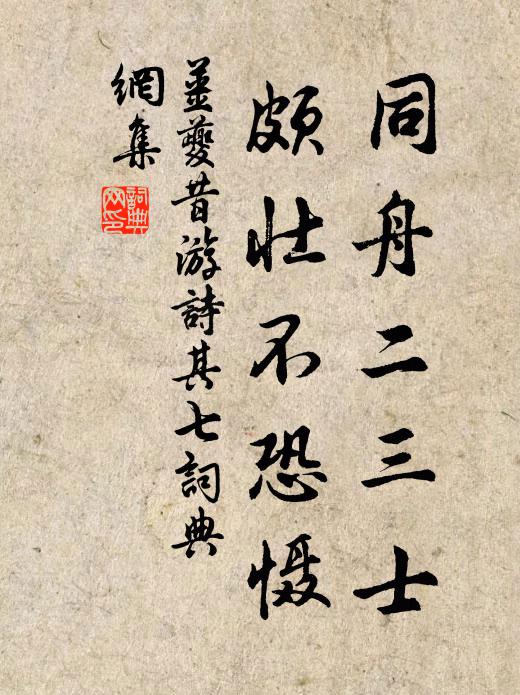 同舟二三士
頗壮不恐慑
姜夔昔游詩其七詞典
網集
詞典網印